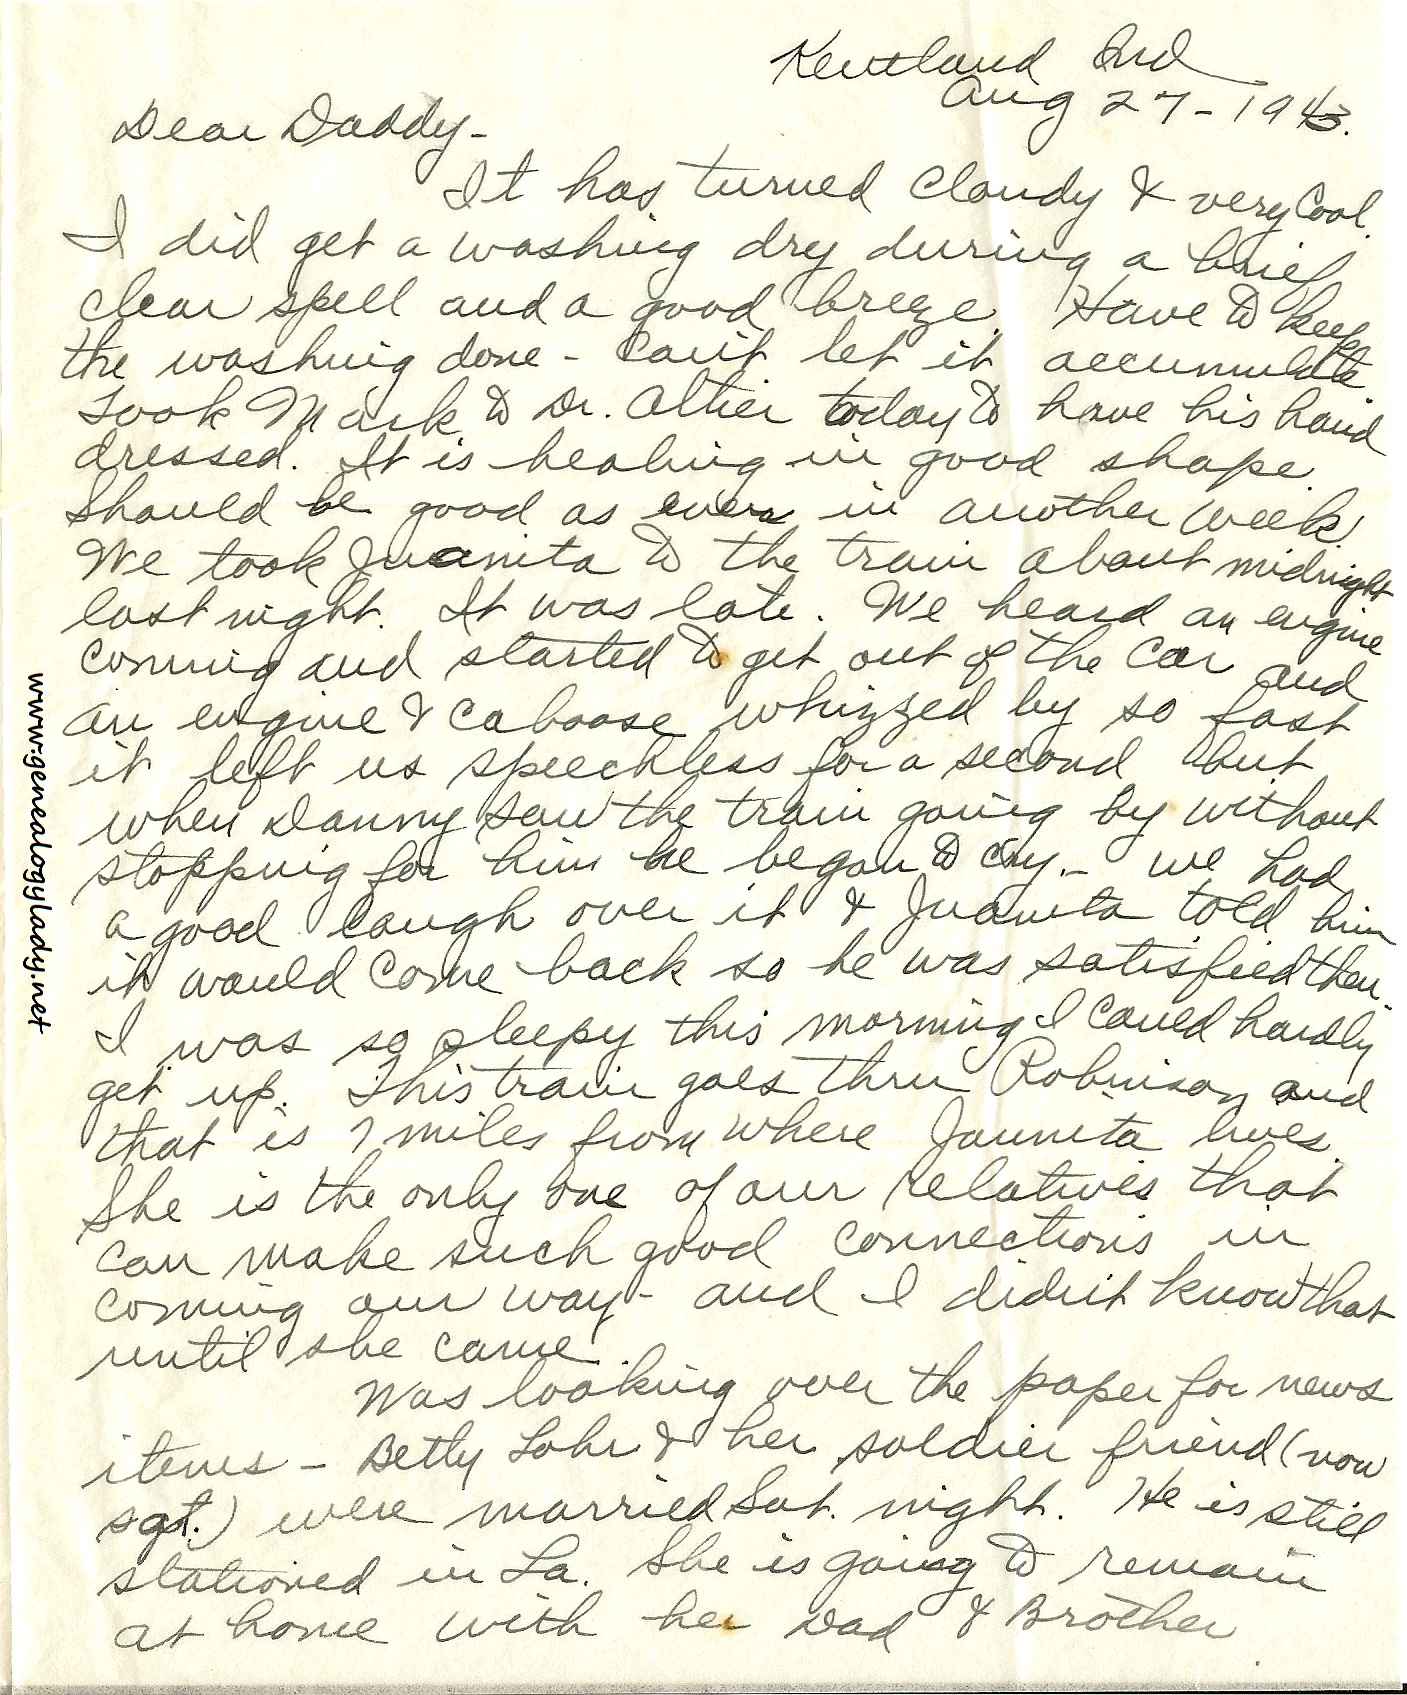 Kentland Ind
Aug 27 - 1943.
Dear Daddy -
It has turned cloudy & very cool.
I did get a washing dry during a brief
clear spell and a good breeze. Have to keep
the washing done - Can't let it accumulate
Took Mark to Dr. Altier today to have his hand
dressed. It is healing in good shape.
Should be good as ever in another week.
We took Juanita to the train about midnight
last night. It was late. We heard an engine
coming and started to get out of the car and
an engine & caboose whizzed by so fast
it left us speechless for a second but
when Danny saw the train going by without
stopping for him he began to cry. - We had
a good laugh over it & Juanita told him
it would come back so he was satisfied then.
I was so sleepy this morning I could hardly
get up. This train goes thru Robinson and
that is 7 miles from where Juanita lives.
She is the only one of our relatives that
can make such good connections in
coming our way - and I didn't know that
until she came.
Was looking over the paper for news
items - Betty Lohr & her soldier friend (now
sgt.) were married Sat. night. He is still
stationed in La. She is going to remain
at home with her Dad & Brother
www.genealogylady.net